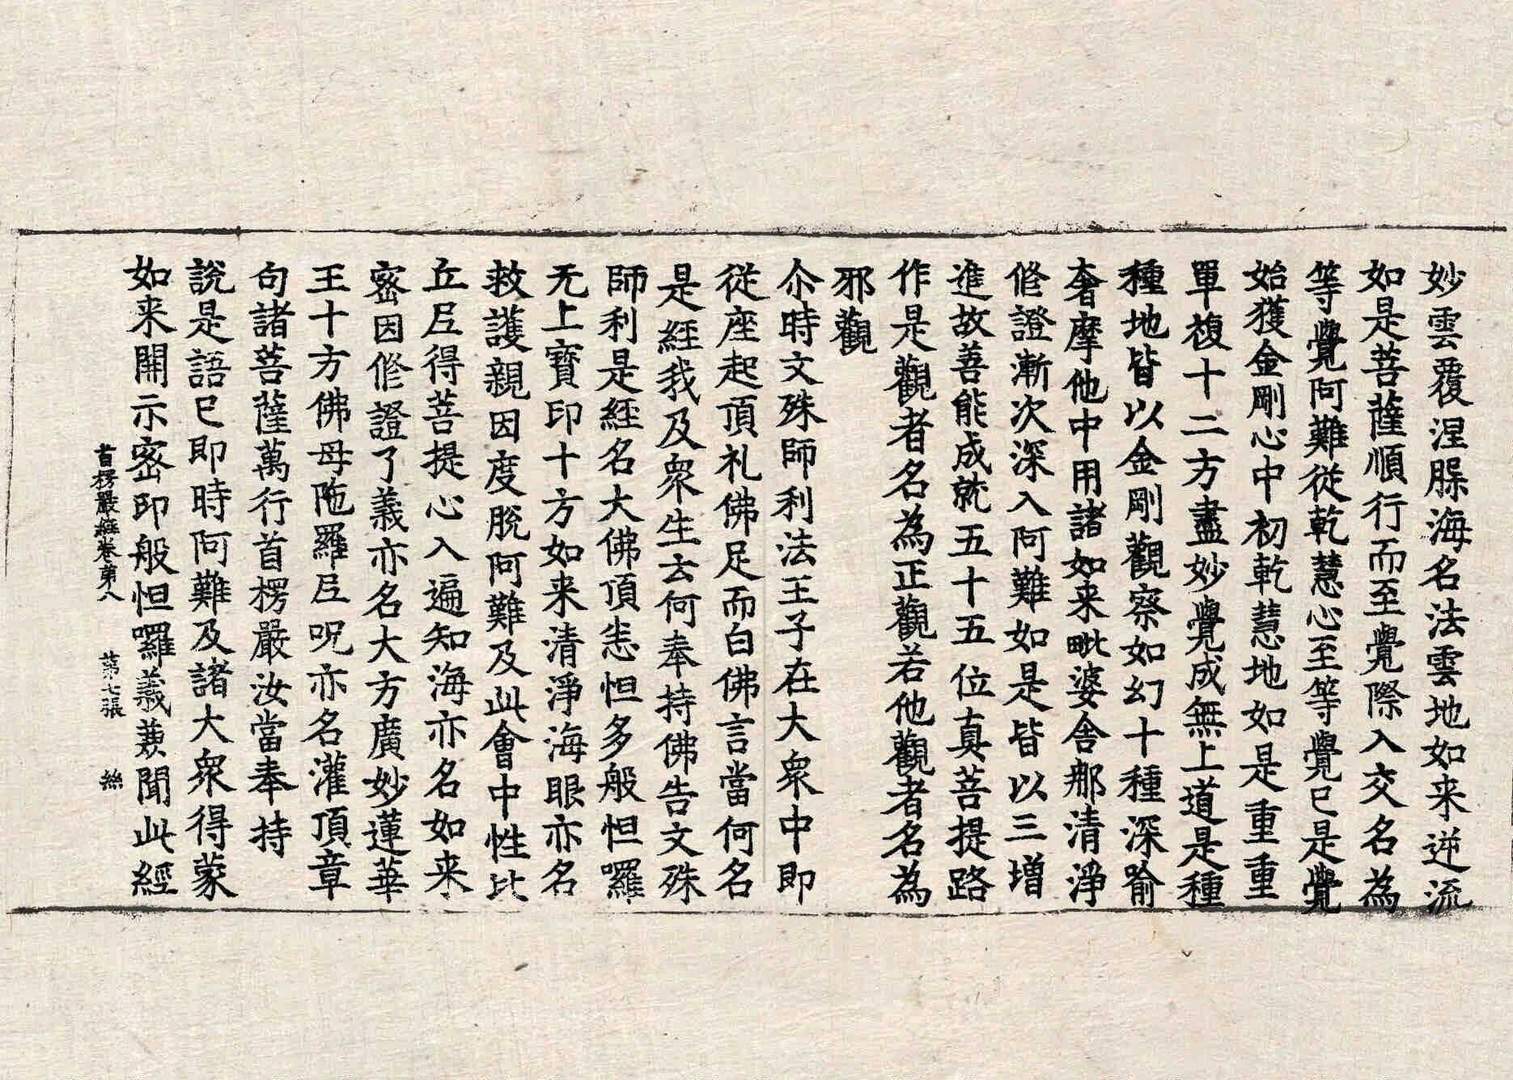 妙雲覆涅槃海名法雲地如来逆流
如是菩薩順行而至覺際入交名為
等覺阿難從乾慧心至等覺已是覺
始獲金剛心中初乾慧地如是重重
單複十二方盡妙覺成無上道是種
種地皆以金剛觀察如幻十種深喻
奢摩他中用諸如来毗婆舍那清淨
修證漸次深入阿難如是皆以三增
進故善能成就五十五位真菩提路
作是觀者名為正觀若他觀者名為
邪觀
尒時文殊師利法王子在大衆中即
從座起頂礼佛足而白佛言當何名
是經我及衆生云何奉持佛告文殊
師利是經名大佛頂悉怛多般怛囉
无上寶印十方如来清淨海眼亦名
救護親因度脫阿難及此會中性比
丘尼得菩提心入遍知海亦名如来
密因修證了義亦名大方廣妙蓮華
王十方佛母陁羅尼呪亦名灌頂章
句諸菩薩萬行首楞嚴汝當奉持
說是語已即時阿難及諸大衆得蒙
如来開示密印般怛囉義兼聞此經
首楞嚴經卷第八 第七張 絲